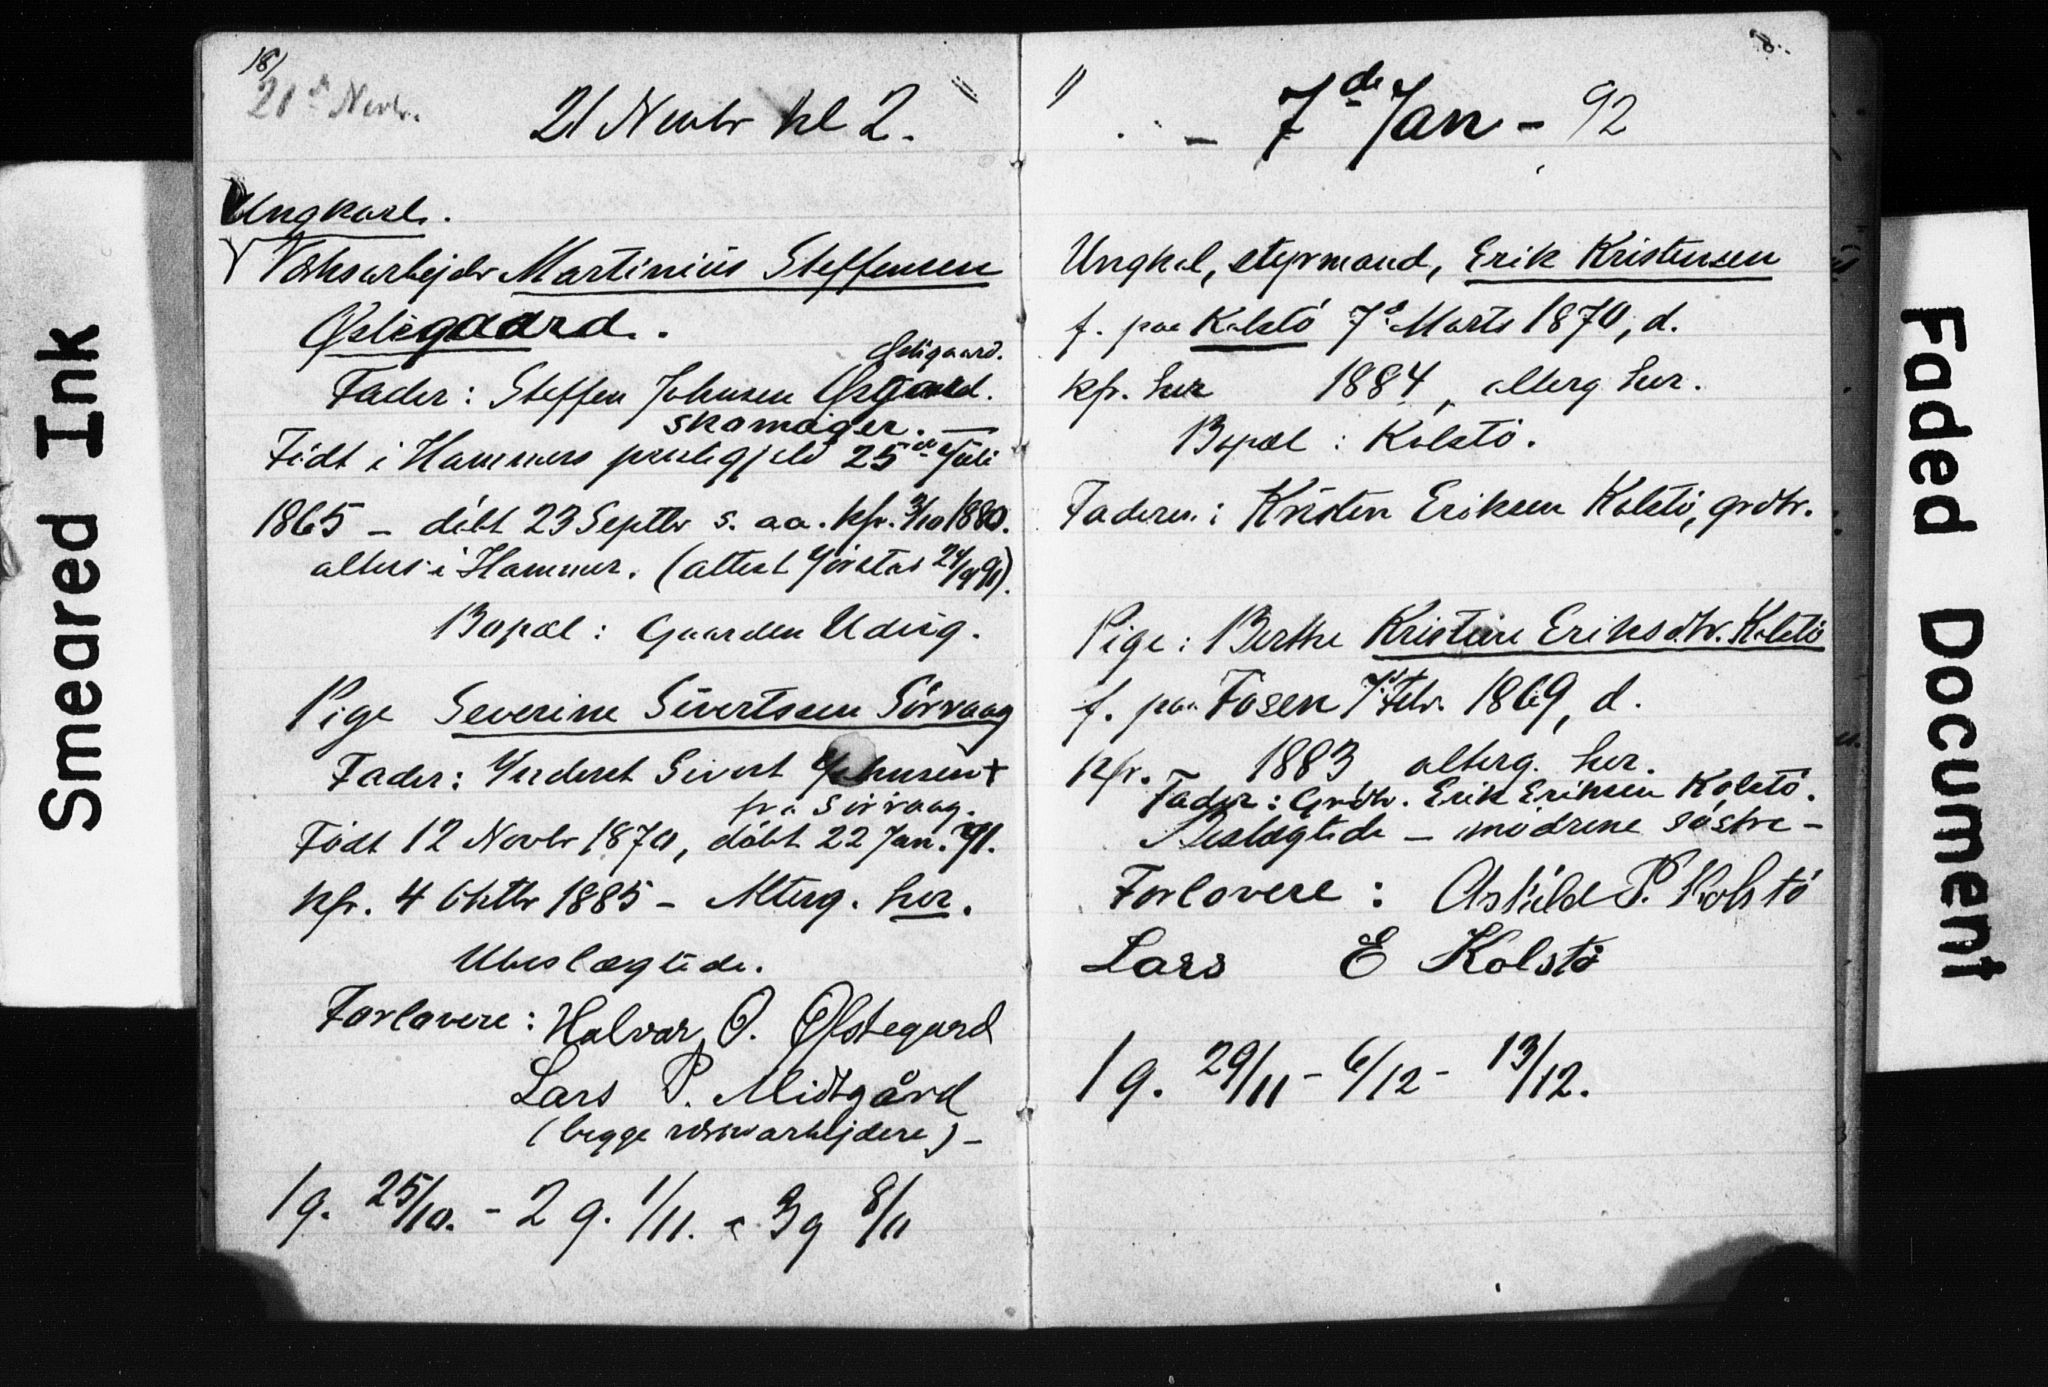 18/
21de Novbr.
21 Novbr kl 2.
Ungkarl.
Værksarbejder Martinius Steffensen
Østigaard.
Østigaard.
Fader: Steffen Johnsen
skomager.
Født i Hammers prestegjeld 25de Juli
1865 – döbt 23 Septbr s. aa. kfr. 3/10 1880.
alters i Hammer. (attest 24/9 91).
Bopæl: Gaarden
Pige Severine Sivertsen Sörvaag
Fader: Inderst Sivert Johnsen +
fra Sörvaag.
Födt 12 Novbr 1870, döbt 22 Jan. 71.
kfr. 4 Oktbr 1885 – Alterg. her.
Ubeslægtede.
Forlovere: Halvar O. Ølstegard
Lars P. Midtgård
(begge værksarbejdere) –
1 g. 25/10. – 2 g. 1/11. – 3 g 8/11
7de Jan – 92
Ungkal, styrmand, Erik Kristensen
f. paa Kolstö 7de Marts 1870, d.
kfr. her 1884, alterg her.
Bopæl: Kolstö.
Faderen: Kristen Eriksen Kolstö, grdbr.
Pige: Berthe Kristine Eriksdtr. Kolstö
f. paa Fosen 7de Febr. 1869, d.
kfr. 1883, alterg. her.
Fader: Grdbr. Erik Eriksen Kolstö.
Beslægtede – mödrene söstre –
Forlovere: Askild P. Kolstö
Lars E Kolstö
1 g. 29/11 – 6/12 – 13/12.
Smeared Ink
Faded Document